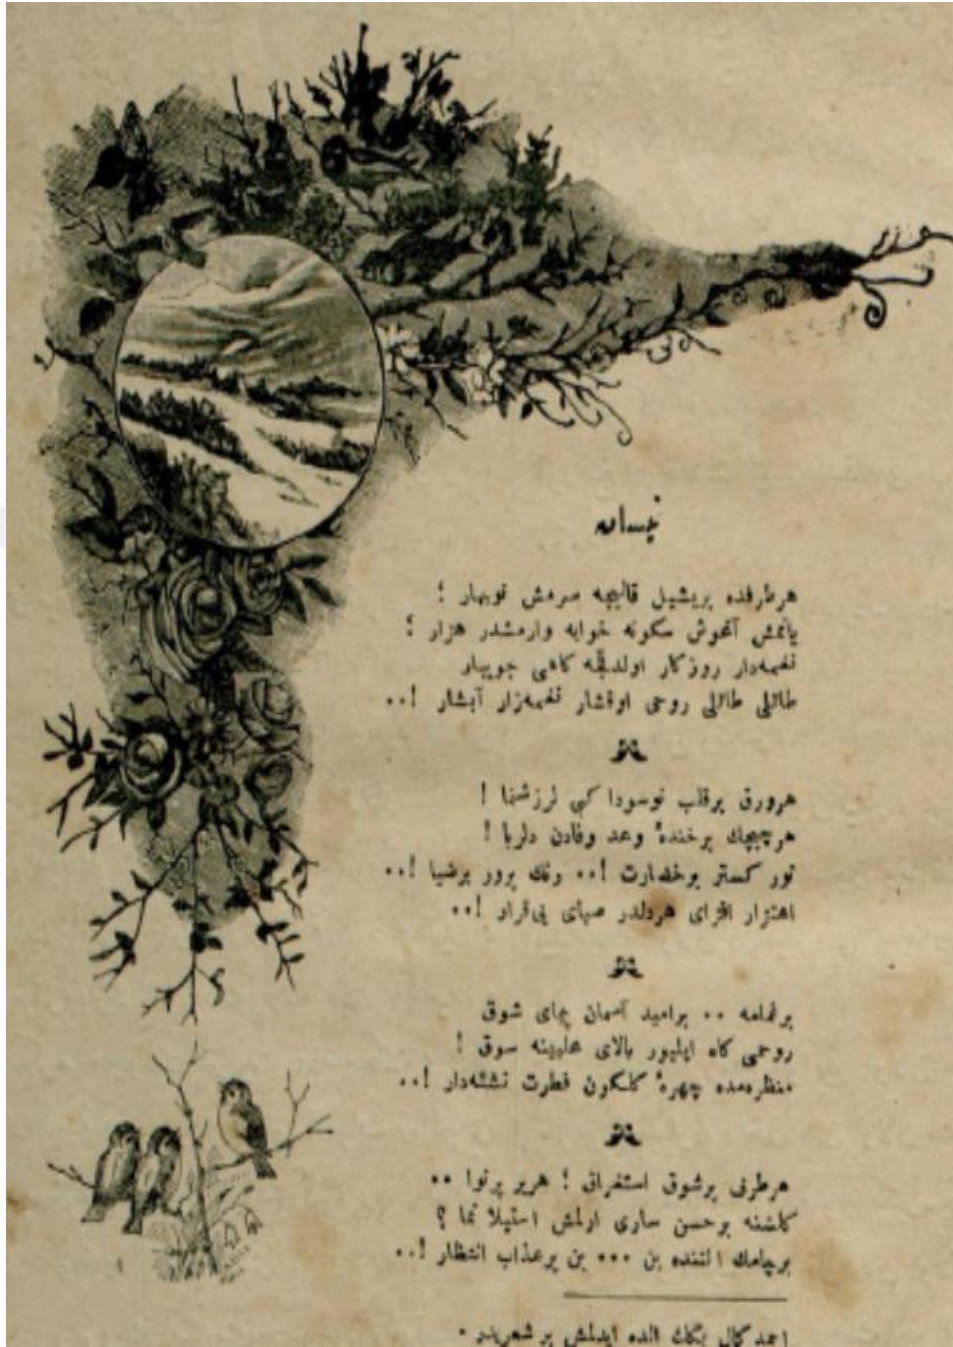 نیسانه
هرطرفده بریشیل قالیچه سرمش نوبهار ؛
یاتمش آغوش سکونه خوابه وارمشدر هزار ؛
نغمه‌دار روزکار اولدقجه کاهی جویبار
طاتلی طاتلی روحی اوقشار نغمه‌زار آبشار !..
هرورق برقلب نوسودا کبی لرزشنما !
هرچیچك برخندهٔ وعد وفادن دلربا !
نور کستر برخضارت !.. رنك پرور برضیا !..
اهتزاز افزای هردلدر صبای بی‌قرار !..
برامید آسمان پیمای شوق
روحمی کاه ایلیور بالای علیینه سوق !
منظره‌مده چهرهٔ کلکون فطرت نشئه‌دار !..
هرطرف برشوق استغراق ؛ هریر پرنوا ..
کلشنه برحسن ساری اولمش استیلا نما ؟
برچامك التنده بن ... بن پرعذاب انتظار !..
احمد کمال بکك الده ایدلمش بر شعریدر .